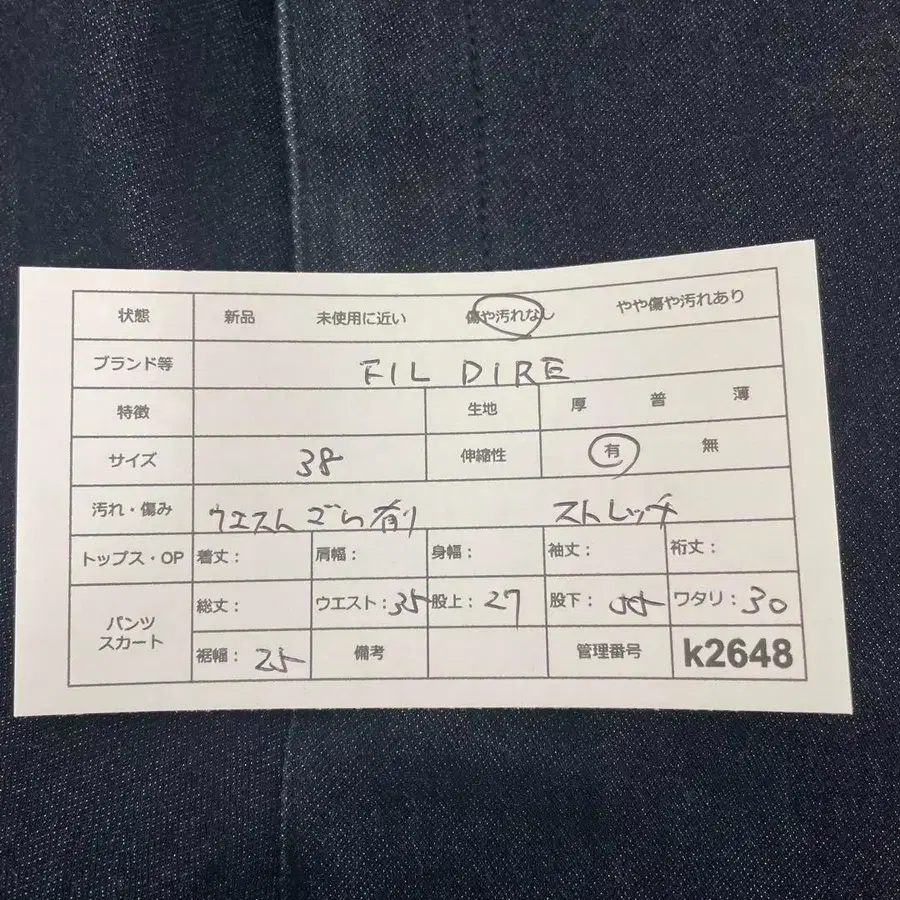 状態 新品 未使用に近い 傷や汚れなし やや傷や汚れあり
ブランド等 FIL DIRE
特徴 生地 厚 普 薄
サイズ 38 伸縮性 有 無
汚れ・傷み ウエストゴム有り ストレッチ
トップス・OP 着丈: 肩幅: 身幅: 袖丈: 裄丈:
パンツ スカート 総丈: ウエスト:35 股上:27 股下:55 ワタリ:30
裾幅:25 備考 管理番号 k2648